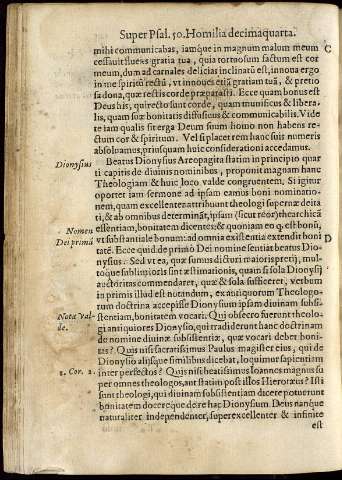 Super Psal. 50. Homilia decimaquarta.
mihi communicabas, iamque in magnum malum meum C
cessauit fluens gratia tua, quia tortuosum factum est cor
meum, dum ad carnales delicias inclinatũ est, innoua ergo
in me spiritũ rectũ, vt innoues etiã gratiam tuã, & pretio
sa dona, quæ rectis corde præparasti. Ecce quam bonus est
Deus his, qui recto sunt corde, quam munificus & libera-
lis, quam suæ bonitatis diffusiuus & communicabilis. Vide
te iam qualis sit erga Deum suum homo non habens re-
ctum cor & spiritum. Vel si placet rem hanc suis numeris
absoluamus, priusquam huic considerationi accedamus.
Dionysius Beatus Dionysius Areopagita statim in principio quar
ti capitis de diuinis nominibus, proponit magnam hanc
Theologiam & huic loco valde congruentem. Si igitur
oportet iam sermone ad ipsam eamus boni nominatio-
nem, quam excellenter attribuunt theologi supernæ deita
ti, & ab omnibus determināt, ipsam (sicut reor) thearchicā
Nomen essentiam, bonitatem dicentes: & quoniam eo q. est bonũ,
Dei primũ vt substantiale bonum: ad omnia existentia extendit boni D
tatē. Ecce quid de primo Dei nomine sentiat beatus Dio-
nysius. Sed vt ea, quæ sumus dicturi maioris pretij, mul-
toque sublimioris sint æstimationis, quam si sola Dionysij
auctoritas commendaret, quæ & sola sufficeret, verbum
in primis illud est notandum, ex antiquorum Theologo-
rum doctrina accepisse Dionysium ipsam diuinam subsi-
Nota val- stentiam, bonitatem vocari. Qui obsecro fuerunt theolo-
de. gi antiquiores Dionysio, qui tradiderunt hanc doctrinam
de nomine diuinæ subsistentiæ, quæ vocari debet boni-
tas? Quis nisi sacratissimus Paulus magister eius, qui de
Dionysio alijsque similibus dicebat, loquimur sapientiam
1. Cor. 2. inter perfectos? Quis nisi beatissimus Ioannes magnus su
per omnes theologos, aut statim post illos Hierotæus? Isti
sunt theologi, qui diuinam subsistentiam dicere potuerunt
bonitatem docereque de re hac Dionysium. Deus nanque
naturaliter independenter, superexcellenter & infinite
est